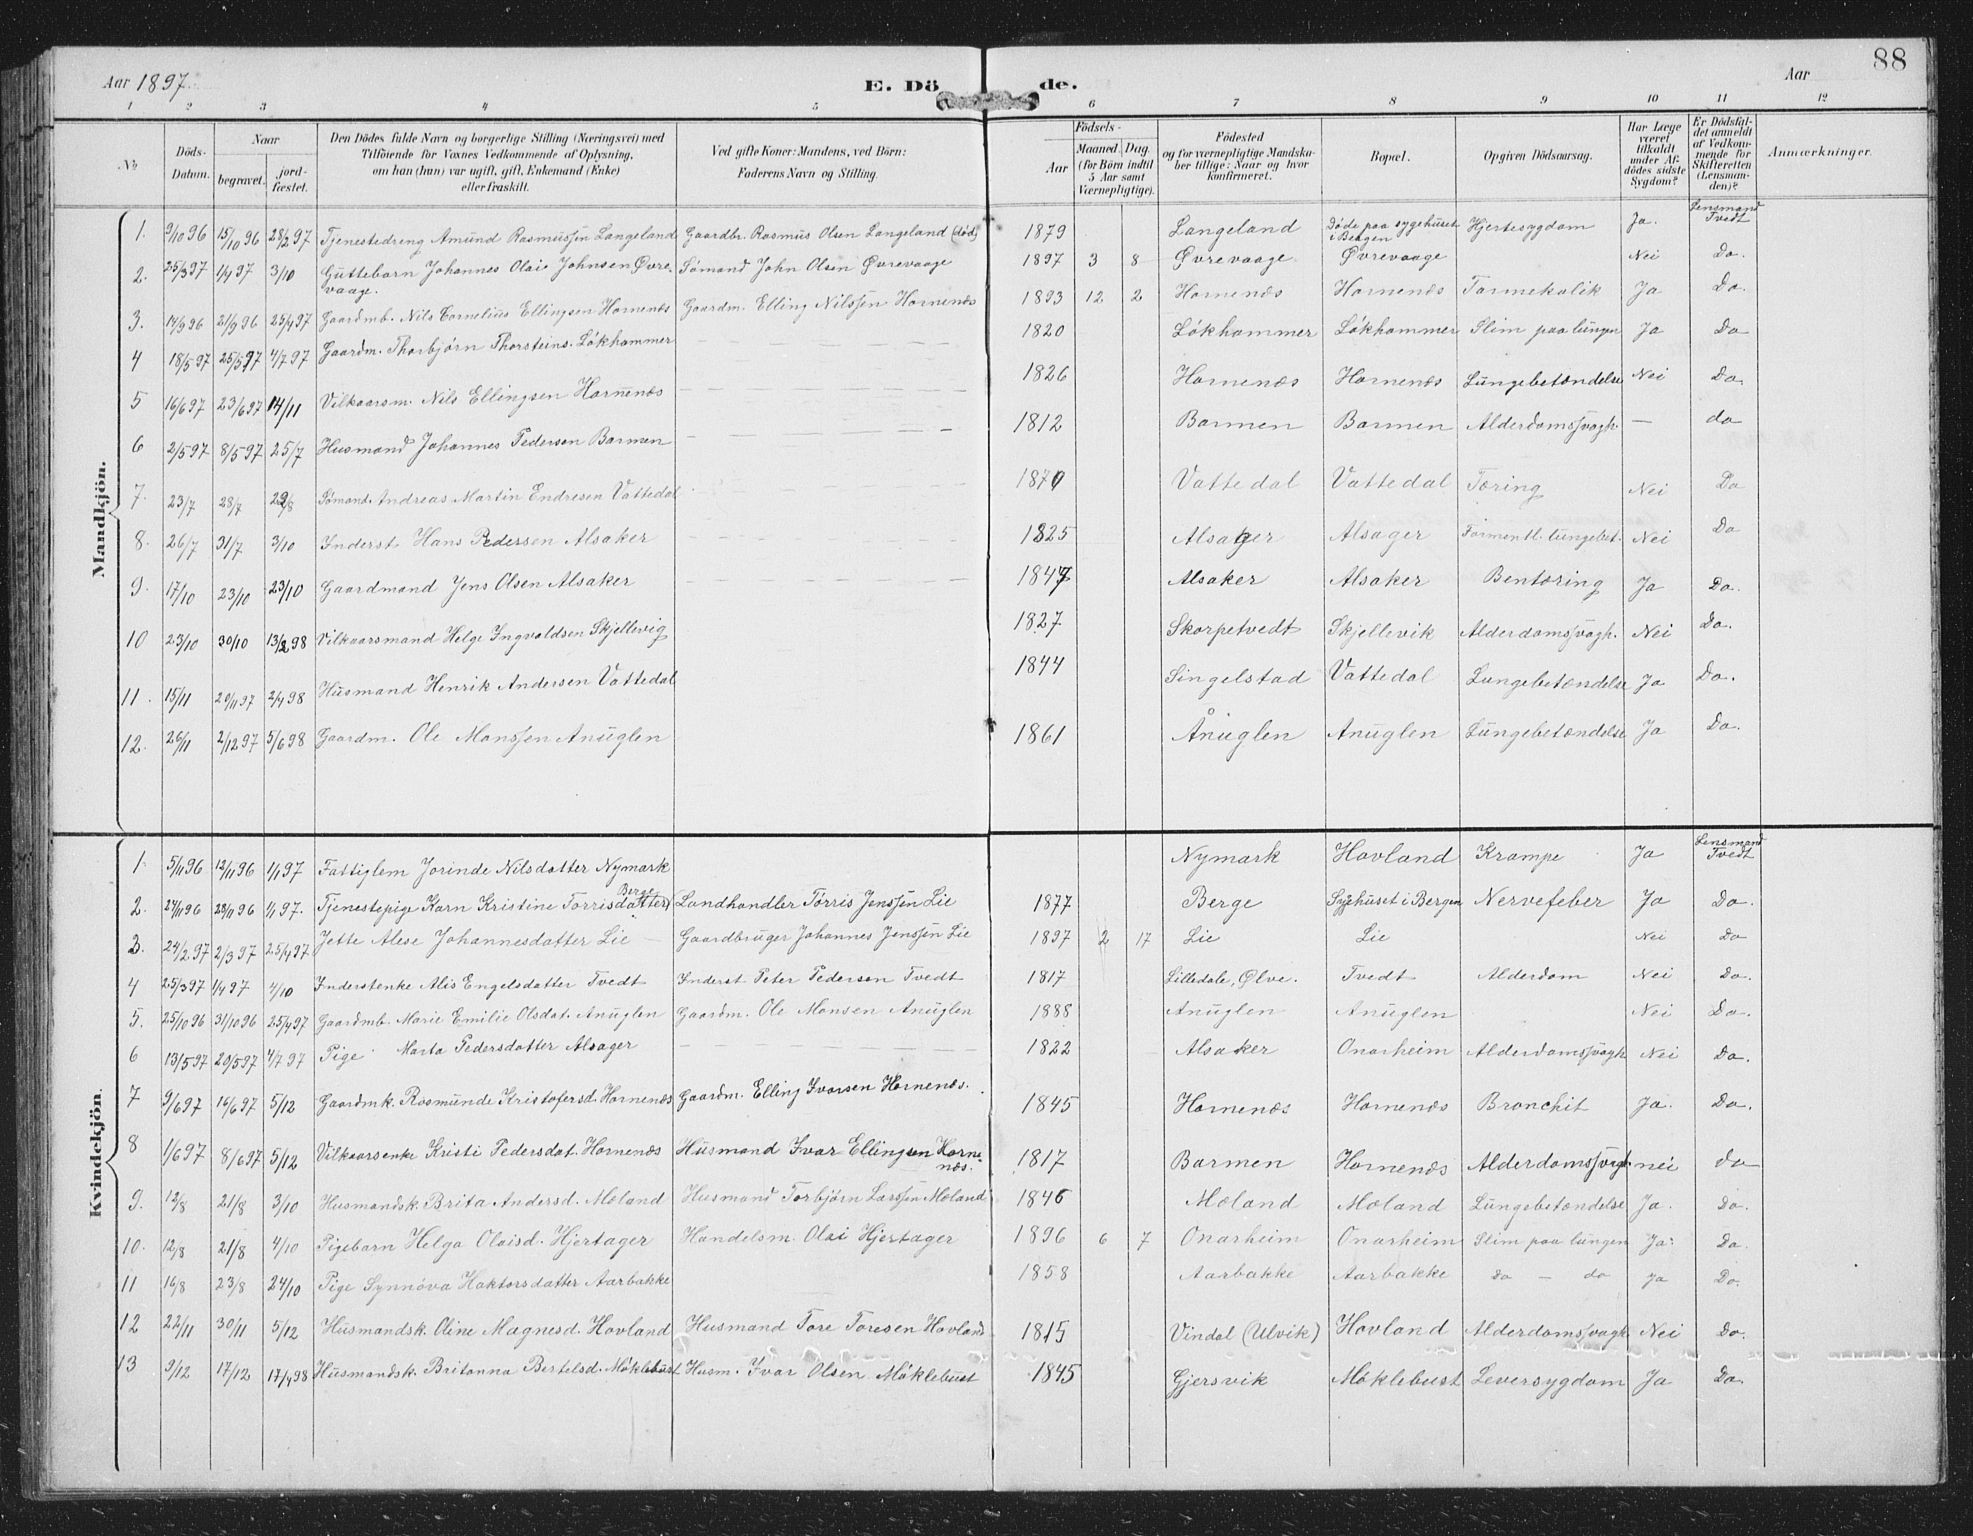 Aar 1897. E. Dö de. Aar 88
1 2 3 4 5 6 7 8 9 10 11 12
No Döds-Datum. Naar begravet. jordfæstet. Den Dödes fulde Navn og borgerlige Stilling (Næringsvei) med Tilföiende for Voxnes Vedkommende af Oplysning, om han (hun) var ugift, gift, Enkemand (Enke) eller fraskilt. Ved gifte Koner: Mandens, ved Börn: Faderens Navn og Stilling. Födsels- Aar Maaned. Dag. (for Börn indtil 5 Aar samt Værnepligtige). Födested og for værnepligtige Mandskaber tillige: Naar og hvor konfirmeret. Bopæl. Opgiven Dödsaarsag. Har Læge været tilkaldt under Afdödes sidste Sygdom? Er Dödsfaldet anmeldt af Vedkommende for Skifteretten (Lensmanden)? Anmærkninger.
Mandkjön.
1. 9/10 96 15/10 96 28/2 97 Tjenestedreng Amund Rasmussen Langeland Gaardbr. Rasmus Olsen Langeland (död) 1879 Langeland Döde paa sygehuset i Bergen Hjertesygdom Ja. Lensmand Tvedt
2. 25/3 97 1/4 97 3/10 Guttebarn Johannes Olai Johnsen Øvrevaage. Sömand John Olsen Øvrevaage 1897 3 8 Øvrevaage Øvrevaage Nei Do.
3. 14/9 96 21/9 96 25/4 97 Gaardmb. Nils Cornelius Ellingsen Hornenæs Gaardm. Elling Nilssen Hornenæs 1893 12 2 Hornenæs Hornenæs Tarmekolik Ja Do.
4 18/5 97 25/5 97 4/7 97 Gaardm. Thorbjörn Thorsteins. Lökhammer 1820 Lökhammer Lökhammer Slim paa lungen Ja Do
5 16/6 97 23/6 97 14/11 Vilkaarsm. Nils Ellingsen Hornenæs 1826 Hornenæs Hornenæs Lungebetændelse Nei Do.
6 2/5 97 8/5 97 25/7 Husmand Johannes Pedersen Barmen 1812 Barmen Barmen Alderdomssvagh. — do
7. 23/7 28/7 29/8 Sömand. Andreas Martin Endresen Vattedal 1870 Vattedal Vattedal Tæring Nei Do
8. 26/7 31/7 3/10 Inderst Hans Pedersen Alsaker 1825 Alsager Alsager Formentl. lungebet. Nei Do
9. 17/10 23/10 23/10 Gaardmand Jens Olsen Alsaker 1847 Alsaker Alsaker Bentæring Ja Do.
10 23/10 30/10 13/2 98 Vilkaarsmand Helge Ingvaldsen Skjellevig 1827 Skorpetvedt Skjellevik Alderdomssvagh. Nei Do.
11. 15/11 20/11 97 2/4 98 Husmand Henrik Andersen Vattedal 1844 Singelstad Vattedal Lungebetændelse Ja Do.
12. 26/11 2/12 97 5/6 98 Gaardm. Ole Monssen Anuglen 1861 Ånuglen Anuglen Lungebetændelse Ja Do.
Kvindekjön.
1. 5/11 96 12/11 96 1/1 97 Fattiglem Jorinde Nilsdatter Nymark Nymark Hovland Krampe Ja Lensmand Tvedt
2. 21/11 96 28/11 96 1/1 97. Tjenestepige Karn Kristine Torrisdatter Berge Landhandler Törris Jenssen Lie 1877 Berge Sygehuset i Bergen Nervefeber Ja Do.
3. 24/2 97 2/3 97 25/4 97 Jette Alese Johannesdatter Lie Gaardbruger Johannes Jenssen Lie 1897 2 17 Lie Lie Nei Do
4 25/3 97 1/4 97 4/10 Inderstenke Alis Engelsdatter Tvedt Inderst Peter Pedersen Tvedt 1817 Lilledale, Ølve. Tvedt Alderdom Nei Do.
5. 25/10 96 31/10 96 25/4 97 Gaardmb. Marie Emilie Olsdat. Anuglen Gaardm. Ole Monsen Anuglen 1888 Anuglen Anuglen Nei Do.
6 13/5 97 20/5 97 4/7 97 Pige Marta Pedersdatter Alsager 1822 Alsaker Onarheim Alderdomssvagh Nei Do.
7 9/6 97 16/6 97 5/12 Gaardmk. Rasmunde Kristofersd. Hornenæs Gaardm. Elling Ivarsen Hornenæs. 1845 Hornenæs Hornenæs Bronchit Ja. Do.
8 1/6 97 8/6 97 5/12 Vilkaarsenke Kristi Pedersdat. Hornenæs Husmand Ivar Ellingsen Hornenæs. 1817 Barmen Hornenæs Alderdomssvagh nei do
9. 12/8 21/8 3/10 Husmandsk. Brita Andersd. Mæland Husmand Torbjörn Larssen Mæland 1846 Mæland Mæland Lungebetændelse Ja. Do.
10. 12/8 21/8 4/10 Pigebarn Helga Olaisd. Hjertager Handelsm. Olai Hjertager 1896 6 7 Onarheim Onarheim Slim paa lungen Ja. Do.
11 16/8 23/8 24/10 Pige Synnöva Haktorsdatter Aarbakke 1858 Aarbakke Aarbakke do — do Ja Do.
12 22/11 30/11 5/12 Husmandsk. Oline Magnesd. Hovland Husmand Tore Toresen Hovland 1815 Vindal (Ulvik) Hovland Alderdomssvagh Nei Do.
13 9/12 17/12 17/4 98 Husmandsk. Britanna Bertelsd. Möklebust Husm. Ivar Olsen Möklebust 1845 Gjersvik Möklebust Leversygdom Ja Do.